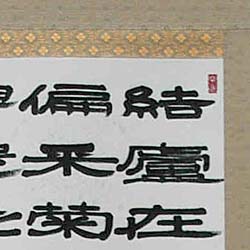 結廬在
偏采菊